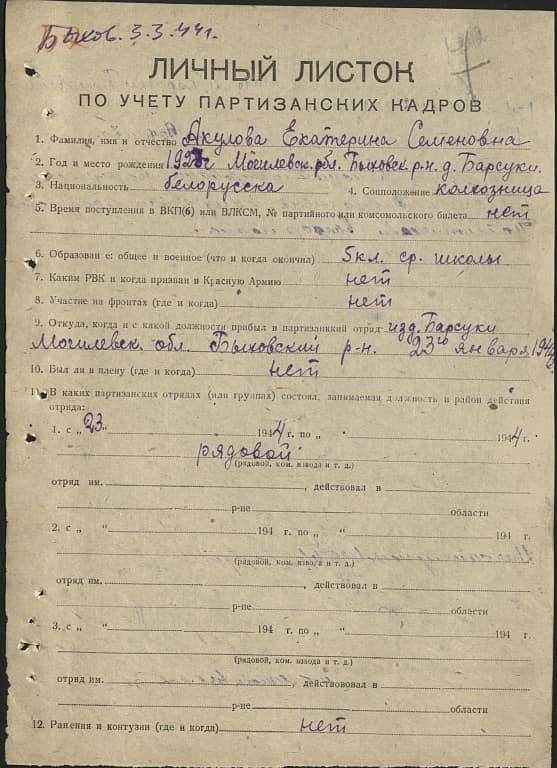 Быхов. 3.3.44г.
ЛИЧНЫЙ ЛИСТОК
ПО УЧЕТУ ПАРТИЗАНСКИХ КАДРОВ
1. Фамилия, имя и отчество Акулова Екатерина Семеновна
2. Год и место рождения Могилевск. обл. Быховск р-н. д. Барсуки.
3. Национальность белорусска 4. Соцположение колхозница
5. Время поступления в ВКП(б) или ВЛКСМ, № партийного или комсомольского билета нет
6. Образование: общее и военное (что и когда окончил) 5 кл. ср. школы
7. Каким РВК и когда призван в Красную Армию нет
8. Участие на фронтах (где и когда) нет
9. Откуда, когда и с какой должности прибыл в партизанкий отряд из д. Барсуки
Могилевск. обл. Быховский р-н. 23го января 1944
10. Был ли в плену (где и когда) нет
11. В каких партизанских отрядах (или группах) состоял, занимаемая должность и район действия
отряда:
1. с „ 23 " 1944 г. по „ " 1944 г.
рядовой
(рядовой, ком. взвода и т. д.)
отряд им. , действовал в
р-не области
2. с „ " 194 г. по „ " 194 г.
(рядовой, ком. взвода и т. д.)
отряд им. , действовал в
р-не области
3. с „ " 194 г. по „ " 194 г.
(рядовой, ком. взвода и т. д.)
отряд им. , действовал в
р-не области
12. Ранения и контузии (где и когда) нет